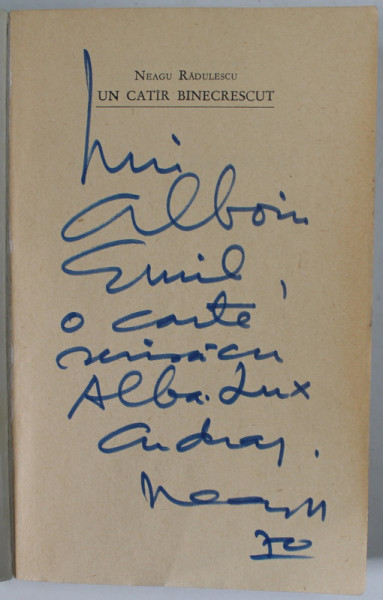 Neagu Rădulescu
UN CATÎR BINECRESCUT
Lui
Alboiu
Emil,
o carte
scrisă cu
Alba-Lux
cu drag.
Neagu
70